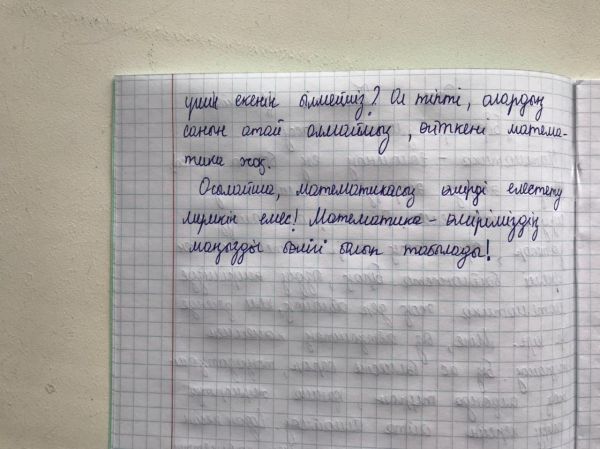 үшін екенін білмейміз? Ол тіпті, олардың
санын атай алмаймыз, өйткені матема-
тика жоқ.
Осылайша, математикасыз өмірді елестету
мүмкін емес! Математика - өміріміздің
маңызды бөлігі болып табылады!